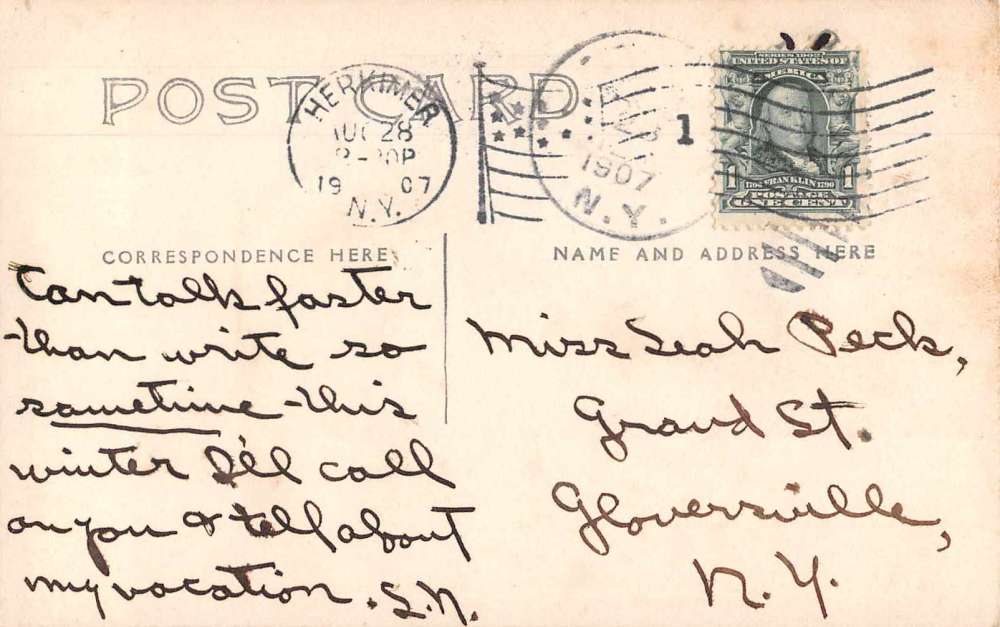 POST CARD
HERKIMER
AUG 28
8-30P
19 07
N.Y.
1907
N.Y.
1
SERIES 1902
UNITED STATES OF
AMERICA
1706 FRANKLIN 1790
1 POSTAGE 1
ONE CENT
CORRESPONDENCE HERE
Can talk faster
than write so
sometime this
winter I'll call
on you & tell about
my vacation. S.N.
NAME AND ADDRESS HERE
Miss Leah Peck,
Grand St.
Gloversville,
N.Y.